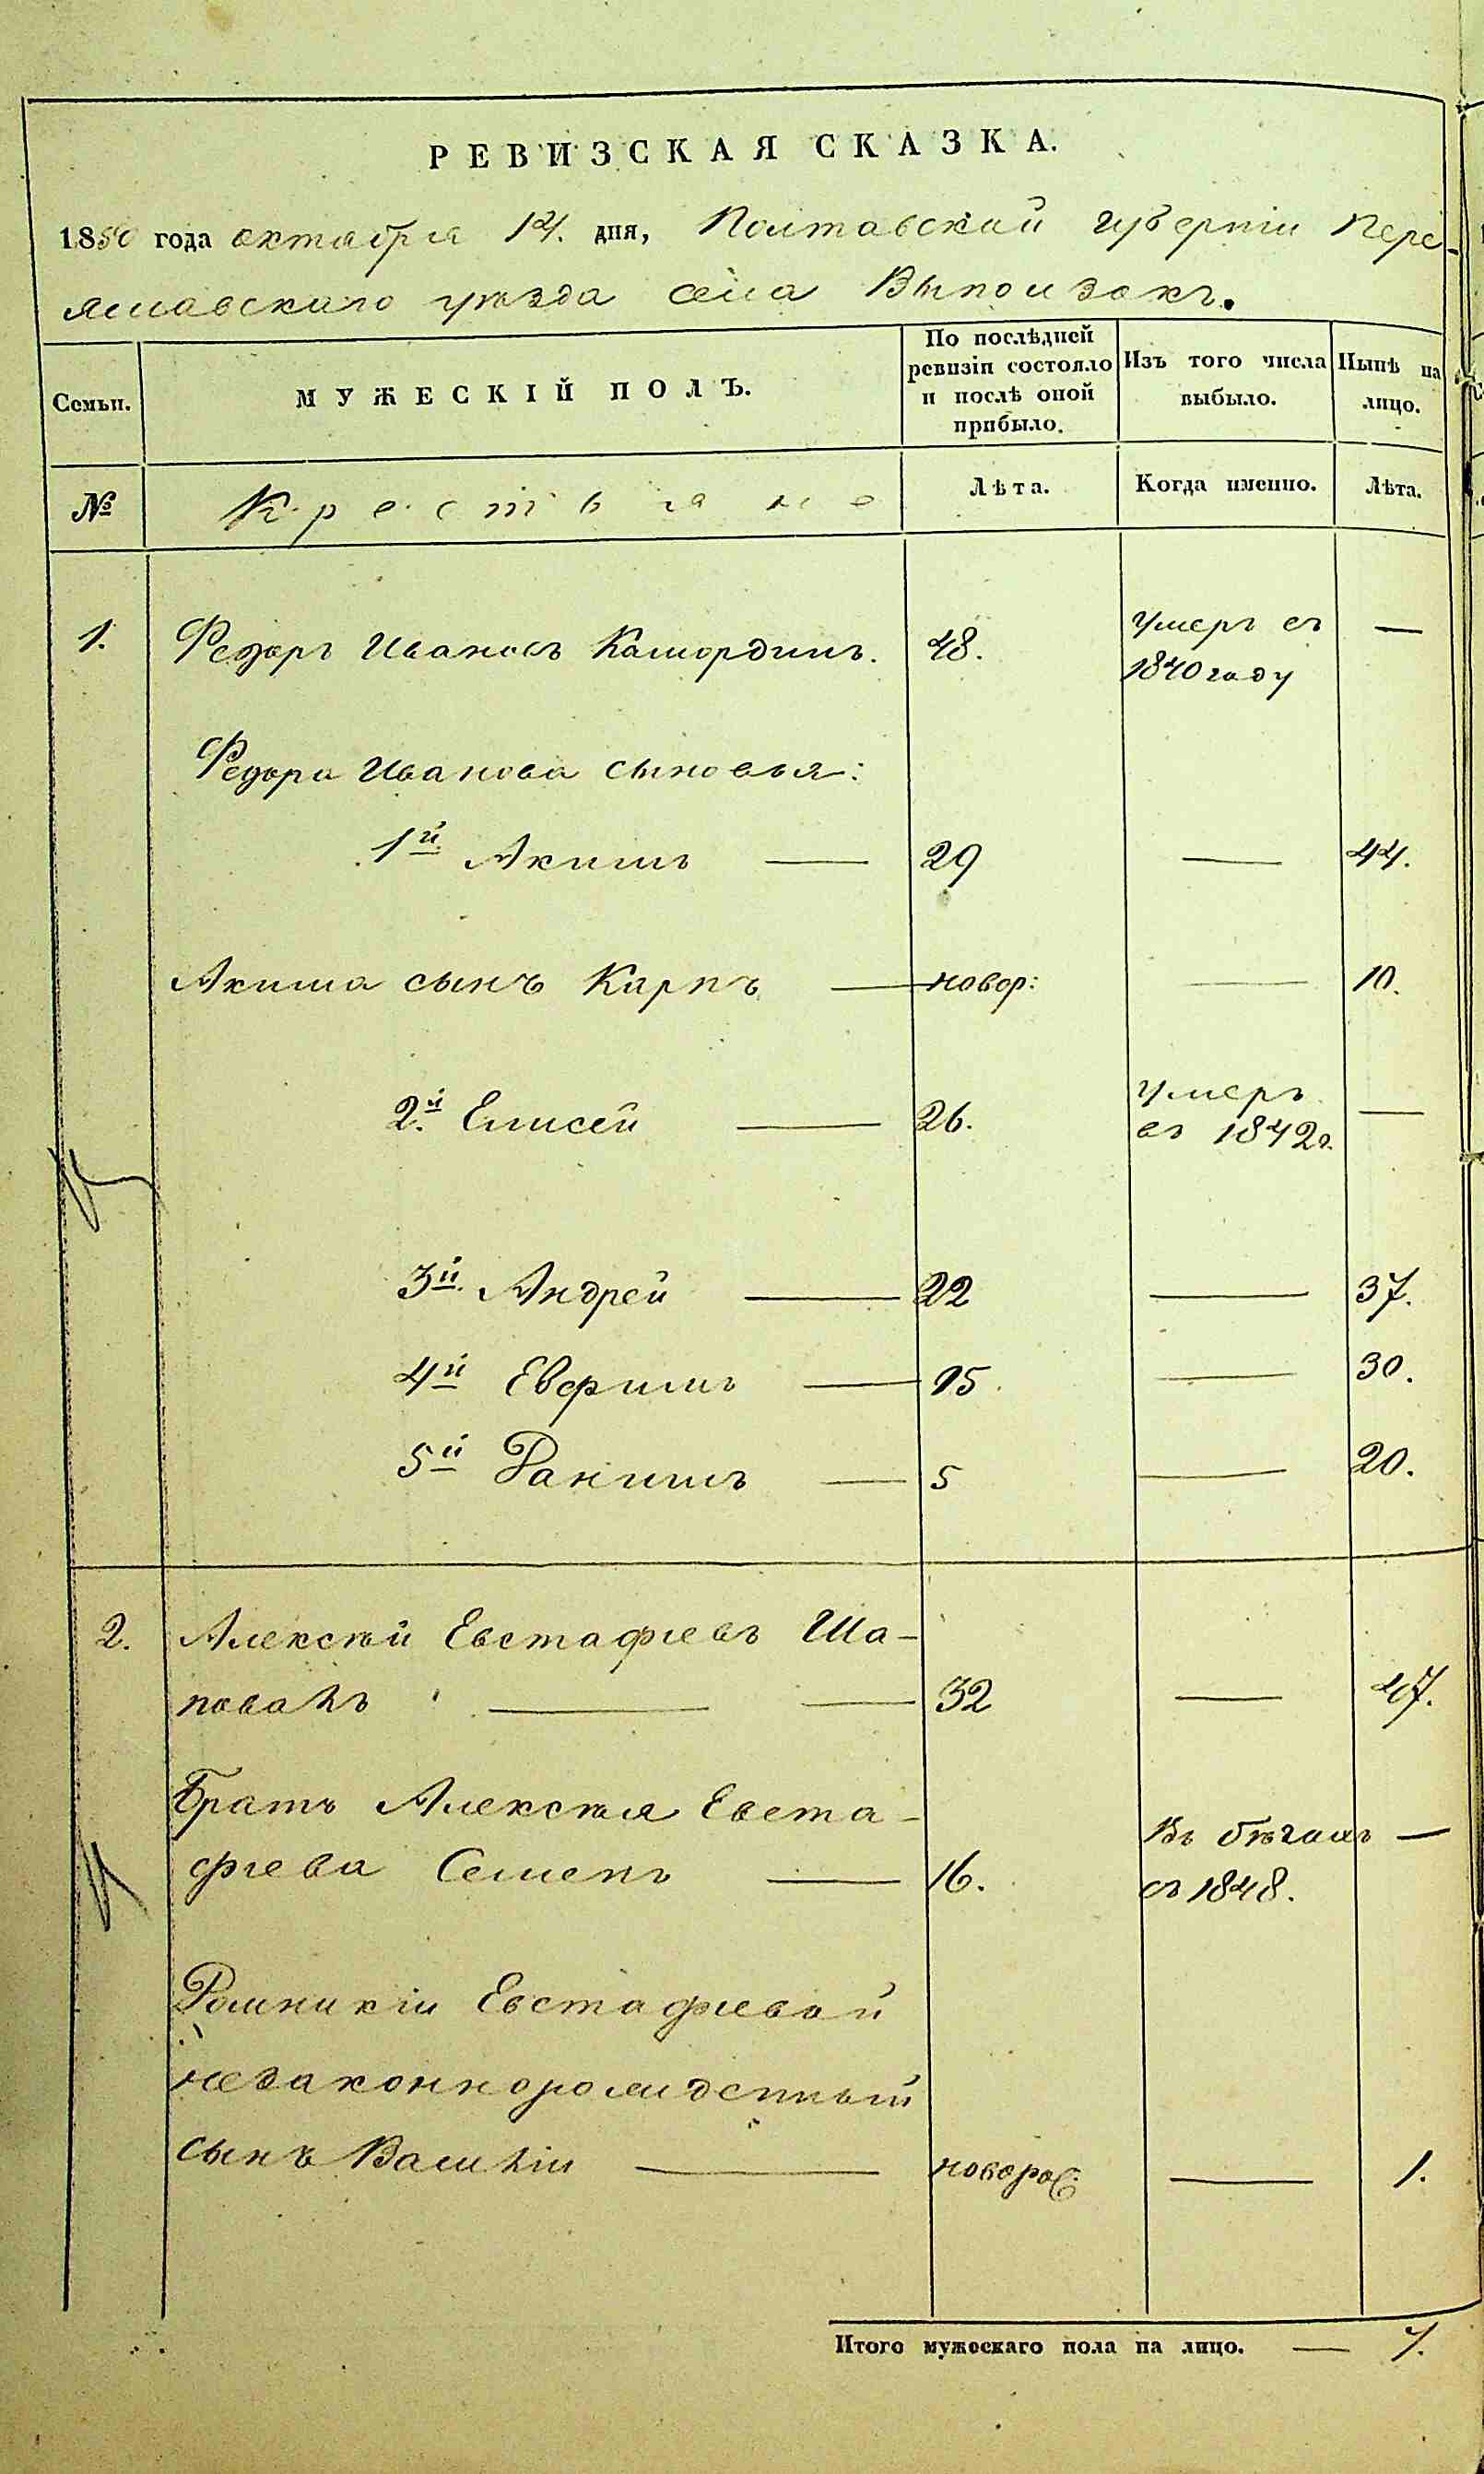 РЕВИЗСКАЯ СКАЗКА.
1850 года октября 14. дня, Полтавской губерніи Пере-
яславскаго уѣзда села Выползокъ.
Семьи. МУЖЕСКІЙ ПОЛЪ. По послѣдней ревизіи состояло и послѣ оной прибыло. Изъ того числа выбыло. Нынѣ на лицо.
№ Крестьяне Лѣта. Когда именно. Лѣта.
1. Федоръ Ивановъ 48. Умеръ въ —
1840 году
Федора Иванова сыновья:
1й Акимъ — 29 — 44.
Акима сынъ Карпъ — новор: — 10.
2й Елисей — 26. Умеръ —
въ 1842г.
3й Андрей — 22 — 37.
4й — 15 — 30.
5й — 5 — 20.
2. Алексѣй Евстафіевъ Ша-
повалъ — — 32 — 47.
Братъ Алексѣя Евста- Въ бѣгахъ —
фіева Семенъ — 16. съ 1848.
Евстафіевой
незаконнорожденный
сынъ Василій — новорож: — 1.
Итого мужескаго пола на лицо. — 7.